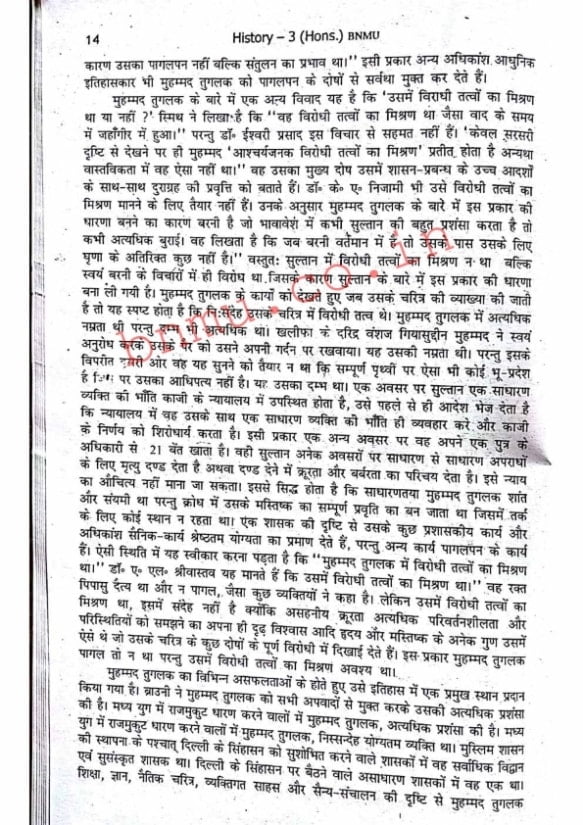 14
History – 3 (Hons.) BNMU
कारण उसका पागलपन नहीं बल्कि संतुलन का प्रभाव था।" इसी प्रकार अन्य अधिकांश आधुनिक
इतिहासकार भी मुहम्मद तुगलक को पागलपन के दोषों से सर्वथा मुक्त कर देते हैं।
मुहम्मद तुगलक के बारे में एक अन्य विवाद यह है कि 'उसमें विराधी तत्वों का मिश्रण
था या नहीं ?' स्मिथ ने लिखा है कि "वह विरोधी तत्वों का मिश्रण था जैसा वाद के समय
में जहाँगीर में हुआ।" परन्तु डॉ० ईश्वरी प्रसाद इस विचार से सहमत नहीं हैं। 'केवल सरसरी
दृष्टि से देखने पर ही मुहम्मद 'आश्चर्यजनक विरोधी तत्वों का मिश्रण' प्रतीत होता है अन्यथा
वास्तविकता में वह ऐसा नहीं था।" वह उसका मुख्य दोष उसमें शासन-प्रबन्ध के उच्च आदशों
के साथ-साथ दुराग्रह की प्रवृत्ति को बताते हैं। डॉ० के० ए० निजामी भी उसे विरोधी तत्वों का
मिश्रण मानने के लिए तैयार नहीं हैं। उनके अनुसार मुहम्मद तुगलक के बारे में इस प्रकार की
धारणा बनने का कारण बरनी है जो भावावेश में कभी सुल्तान की बहुत प्रशंसा करता है तो
कभी अत्यधिक बुराई। वह लिखता है कि जब बरनी वर्तमान में है तो उसके पास उसके लिए
घृणा के अतिरिक्त कुछ नहीं है।" वस्तुतः सुल्तान में विरोधी तत्वों का मिश्रण न था बल्कि
स्वयं बरनी के विचारों में ही विरोध था जिसके कारण सुल्तान के बारे में इस प्रकार की धारणा
बना ली गयी है। मुहम्मद तुगलक के कायों को देखते हुए जब उसके चरित्र की व्याख्या की जाती
है तो यह स्पष्ट होता है कि निःसंदेह उसके चरित्र में विरोधी तत्व थे। मुहम्मद तुगलक में अत्यधिक
नम्रता थी परन्तु दम्भ भी अत्यधिक था। खलीफा के दरिद्र वंशज गियासुद्दीन मुहम्मद ने स्वयं
अनुरोध करके उसके पैर को उसने अपनी गर्दन पर रखवाया। यह उसकी नम्रता थी। परन्तु इसके
विपरीत दूसरी ओर वह यह सुनने को तैयार न था कि सम्पूर्ण पृथ्वी पर ऐसा भी कोई भू-प्रदेश
है पर उसका आधिपत्य नहीं है। यह उसका दम्भ था। एक अवसर पर सुल्तान एक साधारण
व्यक्ति की भाँति काजी के न्यायालय में उपस्थित होता है, उसे पहले से ही आदेश भेज देता है
कि न्यायालय में वह उसके साथ एक साधारण व्यक्ति की भांति ही व्यवहार करे और काजी
के निर्णय को शिरोधार्य करता है। इसी प्रकार एक अन्य अवसर पर वह अपने एक पुत्र के
अधिकारी से 21 बेंत खाता है। वही सुल्तान अनेक अवसरों पर साधारण से साधारण अपराधों
के लिए मृत्यु दण्ड देता है अथवा दण्ड देने में क्रूरता और बर्बरता का परिचय देता है। इसे न्याय
का औचित्य नहीं माना जा सकता। इससे सिद्ध होता है कि साधारणतया मुहम्मद तुगलक शांत
और संयमी था परन्तु क्रोध में उसके मस्तिष्क का सम्पूर्ण प्रवृति का बन जाता था जिसमें तर्क
के लिए कोई स्थान न रहता था। एक शासक की दृष्टि से उसके कुछ प्रशासकीय कार्य और
अधिकांश सैनिक-कार्य श्रेष्ठतम योग्यता का प्रमाण देते हैं, परन्तु अन्य कार्य पागलपन के कार्य
हैं। ऐसी स्थिति में यह स्वीकार करना पड़ता है कि "मुहम्मद तुगलक में विरोधी तत्वों का मिश्रण
था।" डॉ० ए० एल० श्रीवास्तव यह मानते हैं कि उसमें विरोधी तत्वों का मिश्रण था।" वह रक्त
पिपासु दैत्य था और न पागल, जैसा कुछ व्यक्तियों ने कहा है। लेकिन उसमें विरोधी तत्वों का
मिश्रण था, इसमें संदेह नहीं है क्योंकि असहनीय क्रूरता अत्यधिक परिवर्तनशीलता और
परिस्थितियों को समझने का अपना ही दृढ़ विश्वास आदि हृदय और मस्तिष्क के अनेक गुण उसमें
ऐसे थे जो उसके चरित्र के कुछ दोषों के पूर्ण विरोधी में दिखाई देते हैं। इस प्रकार मुहम्मद तुगलक
पागल तो न था परन्तु उसमें विरोधी तत्वों का मिश्रण अवश्य था।
मुहम्मद तुगलक का विभिन्न असफलताओं के होते हुए उसे इतिहास में एक प्रमुख स्थान प्रदान
किया गया है। ब्राउनी ने मुहम्मद तुगलक को सभी अपवादों से मुक्त करके उसकी अत्यधिक प्रशंसा
की है। मध्य युग में राजमुकुट धारण करने वालों में मुहम्मद तुगलक, अत्यधिक प्रशंसा की है। मध्य
युग में राजमुकुट धारण करने वालों में मुहम्मद तुगलक, निस्सन्देह योग्यतम व्यक्ति था। मुस्लिम शासन
की स्थापना के पश्चात् दिल्ली के सिंहासन को सुशोभित करने वाले शासकों में वह सर्वाधिक विद्वान
एवं सुसंस्कृत शासक था। दिल्ली के सिंहासन पर बैठने वाले असाधारण शासकों में वह एक था।
शिक्षा, ज्ञान, नैतिक चरित्र, व्यक्तिगत साहस और सैन्य-संचालन की दृष्टि से मुहम्मद तुगलक
bnmu.co.in